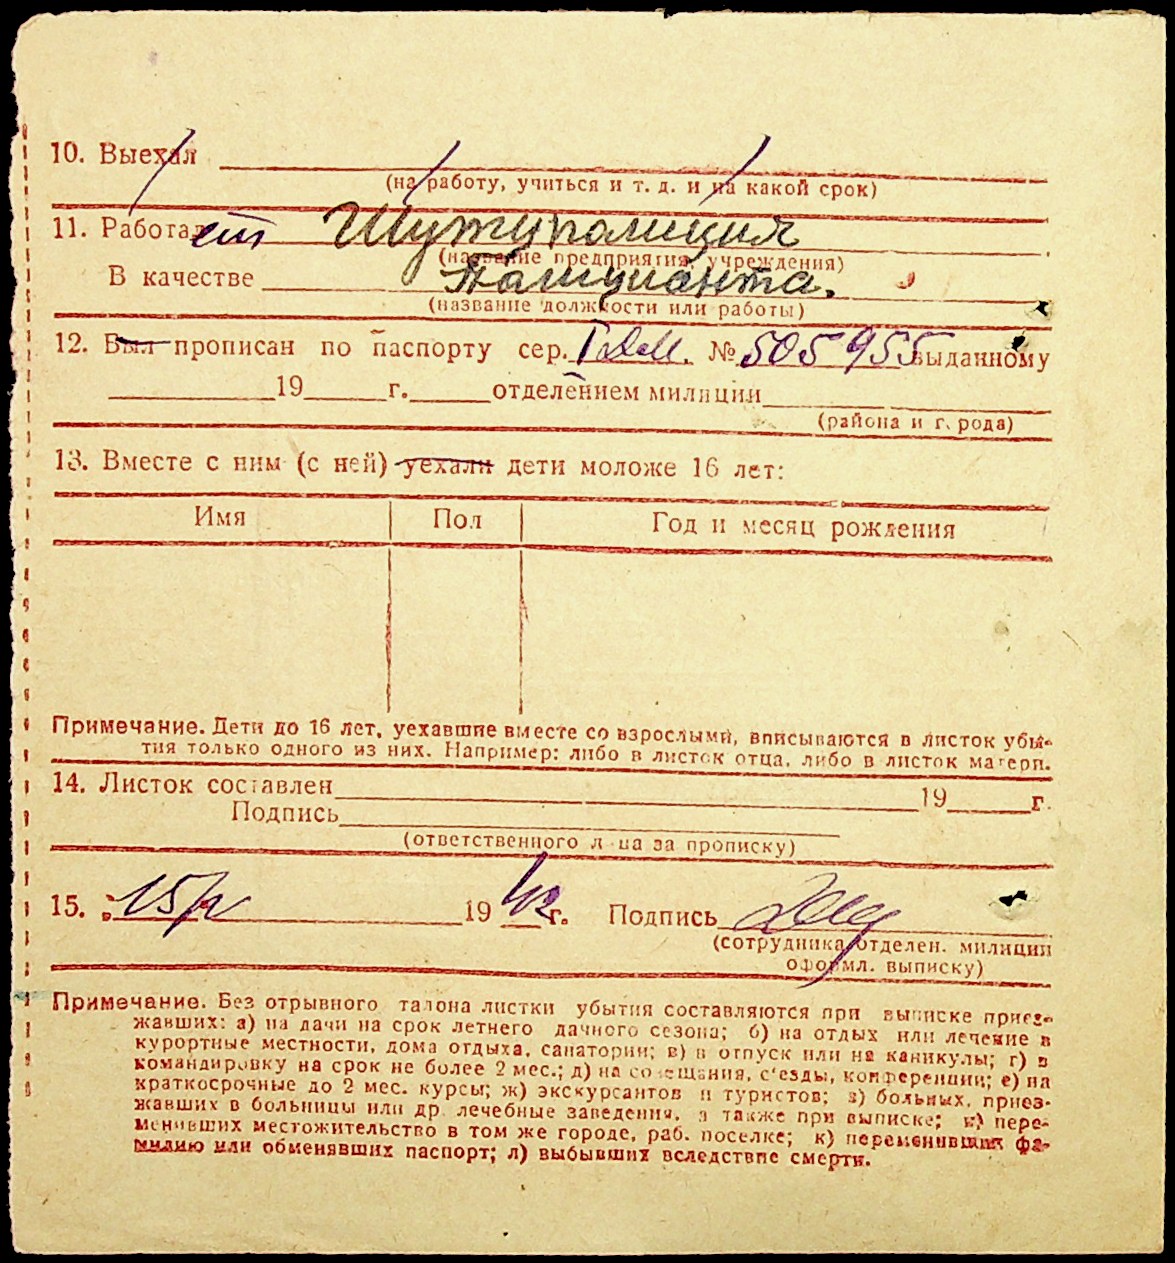 10. Выехал
(на работу, учиться и т. д. и на какой срок)
11. Работает Шуцполиция
(название предприятия, учреждения)
В качестве
(название должности или работы)
12. Был прописан по паспорту сер. № 505955 выданному
19 г. отделением милиции
(района и города)
13. Вместе с ним (с ней) уехали дети моложе 16 лет:
Имя Пол Год и месяц рождения
Примечание. Дети до 16 лет, уехавшие вместе со взрослыми, вписываются в листок убы-
тия только одного из них. Например: либо в листок отца, либо в листок матери.
14. Листок составлен 19 г.
Подпись
(ответственного лица за прописку)
15. 15/ 19 42 г. Подпись
(сотрудника отделен. милиции
оформл. выписку)
Примечание. Без отрывного талона листки убытия составляются при выписке приез-
жавших: а) на дачи на срок летнего дачного сезона; б) на отдых или лечение в
курортные местности, дома отдыха, санатории; в) в отпуск или на каникулы; г) в
командировку на срок не более 2 мес.; д) на совещания, с'езды, конференции; е) на
краткосрочные до 2 мес. курсы; ж) экскурсантов и туристов; з) больных, приез-
жавших в больницы или др. лечебные заведения, а также при выписке; и) пере-
менивших местожительство в том же городе, раб. поселке; к) переменивших фа-
милию или обменявших паспорт; л) выбывших вследствие смерти.